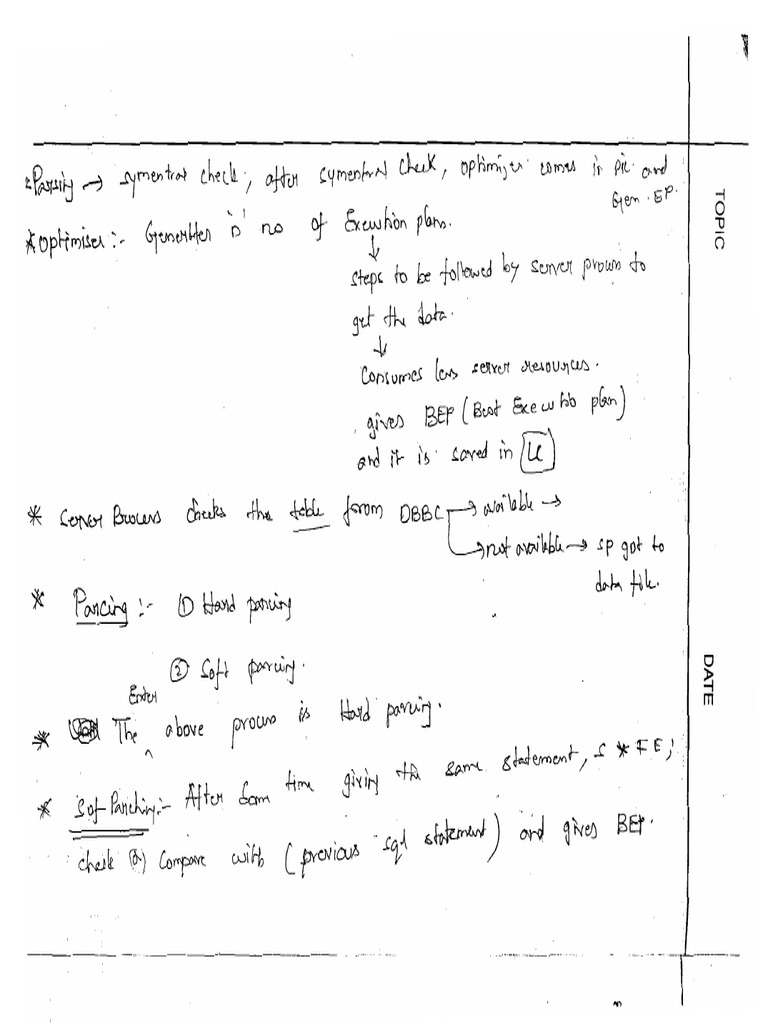 Parsing → symentral check, after symentral check, optimizer comes in pic and
Gen. EP.
* Optimiser :- Generates 'n' no of Execution plans.
↓
steps to be followed by server process to
get the data.
↓
Consumes less server resources.
gives BEP (Best Execution plan)
and it is saved in LC
* Server Process checks the table from DBBC → available →
→ not available → SP got to
data file.
* Parcing :- ① Hard parcing
② Soft parcing.
Enter
* The above process is Hard parcing.
* Sof Parching :- After som time giving the same statement, S * F E;
check (or) Compare with (previous sql statement) and gives BEP.
TOPIC
DATE